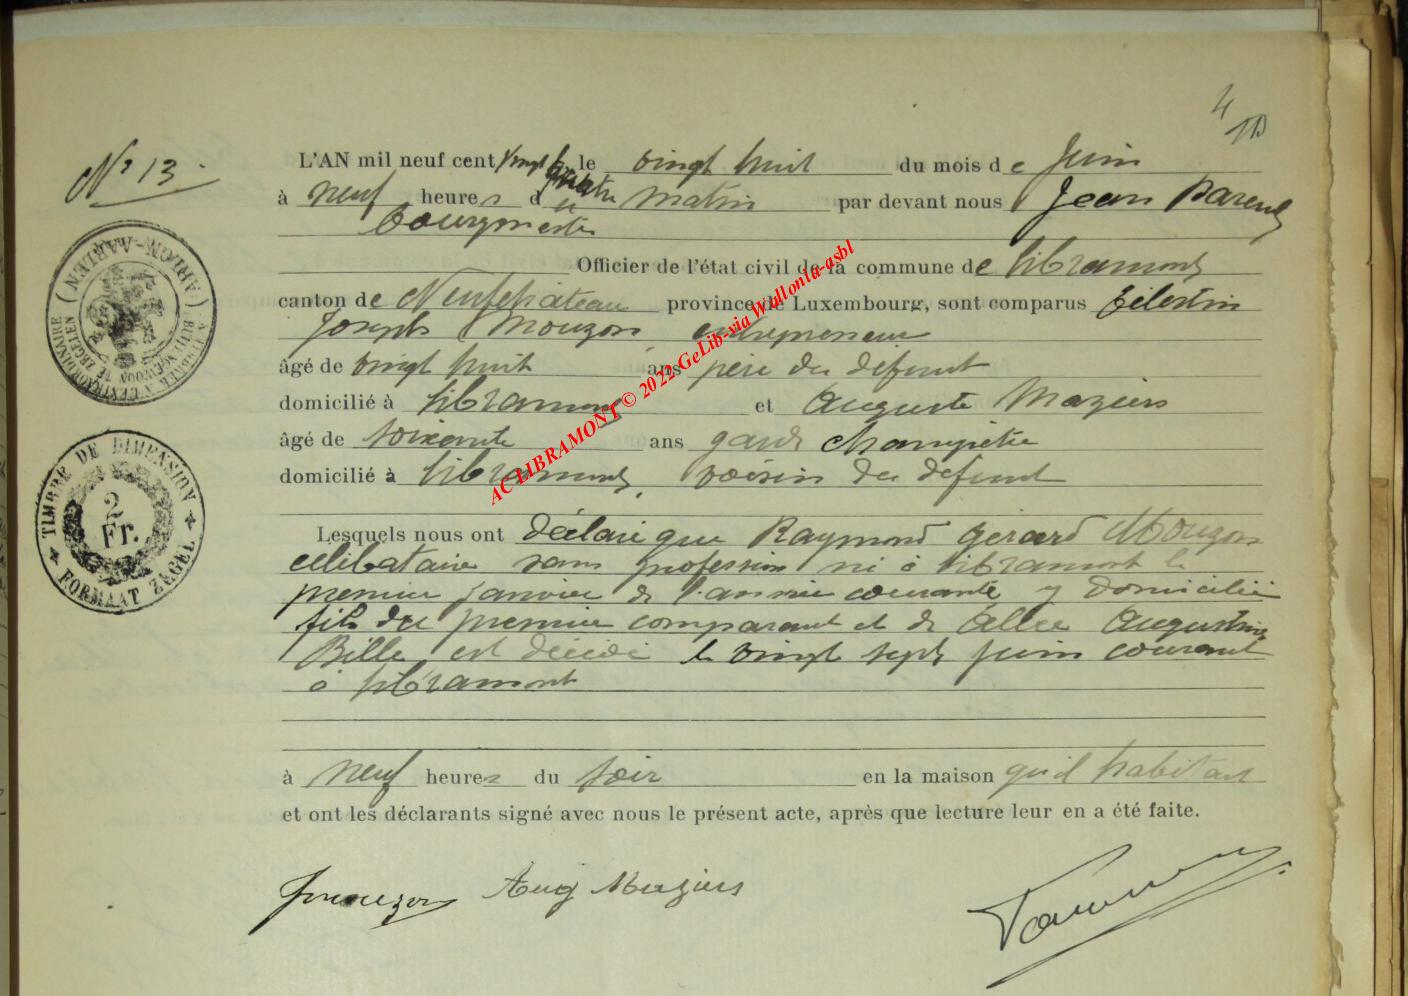 4
N° 13
L'AN mil neuf cent vingt quatre le vingt huit du mois de Juin
à neuf heures du matin par devant nous Jean
bourgmestre
Officier de l'état civil de la commune de Libramont
canton de Neufchâteau province de Luxembourg, sont comparus Célestin
Joseph Mouzon, entrepreneur
âgé de vingt huit ans père du défunt
domicilié à Libramont et Auguste Maziers
âgé de soixante ans garde champêtre
domicilié à Libramont, voisin du défunt
Lesquels nous ont déclaré que Raymond Gérard Mouzon
célibataire sans profession né à Libramont le
premier janvier de l'année courante y domicilié
fils du premier comparant et de Augustine
Bille est décédé le vingt sept juin courant
à Libramont
à neuf heures du soir en la maison qu'il habitait
et ont les déclarants signé avec nous le présent acte, après que lecture leur en a été faite.
JMouzon Aug Maziers
(ARLON-AARLEN)
TIMBRE DE DIMENSION
2
Fr.
FORMAAT ZEGEL
AC LIBRAMONT © 2022 GeLib-via Wallonia-asbl